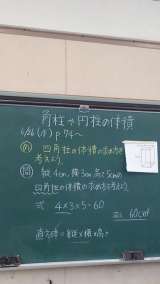 角柱や円柱の体積
6/26(水) p.94~
め 四角柱の体積の求め方を
考えよう。
問 縦4cm,横3cm,高さ5cmの
四角柱の体積の求め方を考えよう。
式 4×3×5=60
答え 60cm³
直方体=縦×横×高さ